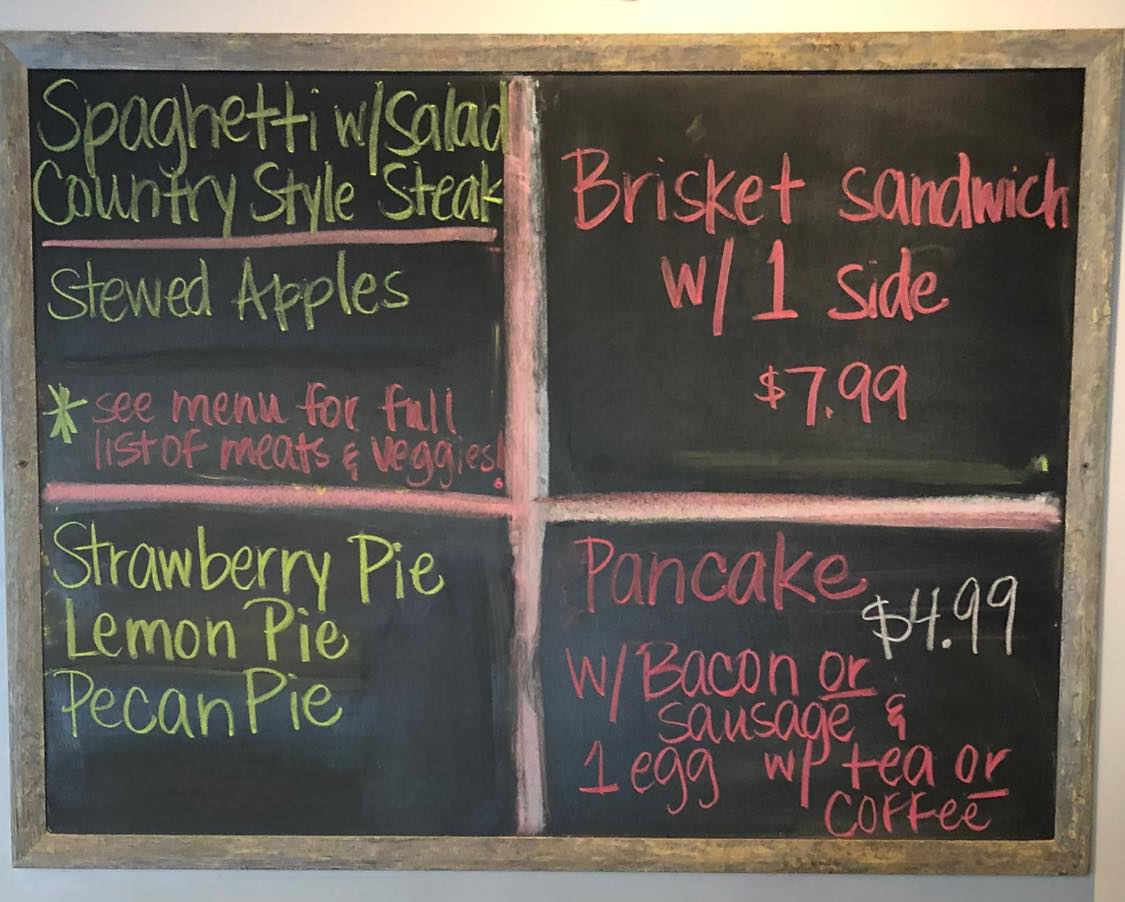 Spaghetti w/Salad
Country Style Steak
Stewed Apples
* see menu for full
list of meats & veggies!
Strawberry Pie
Lemon Pie
Pecan Pie
Brisket sandwich
w/ 1 side
$7.99
Pancake
$4.99
w/Bacon or
sausage &
1 egg w/ tea or
coffee